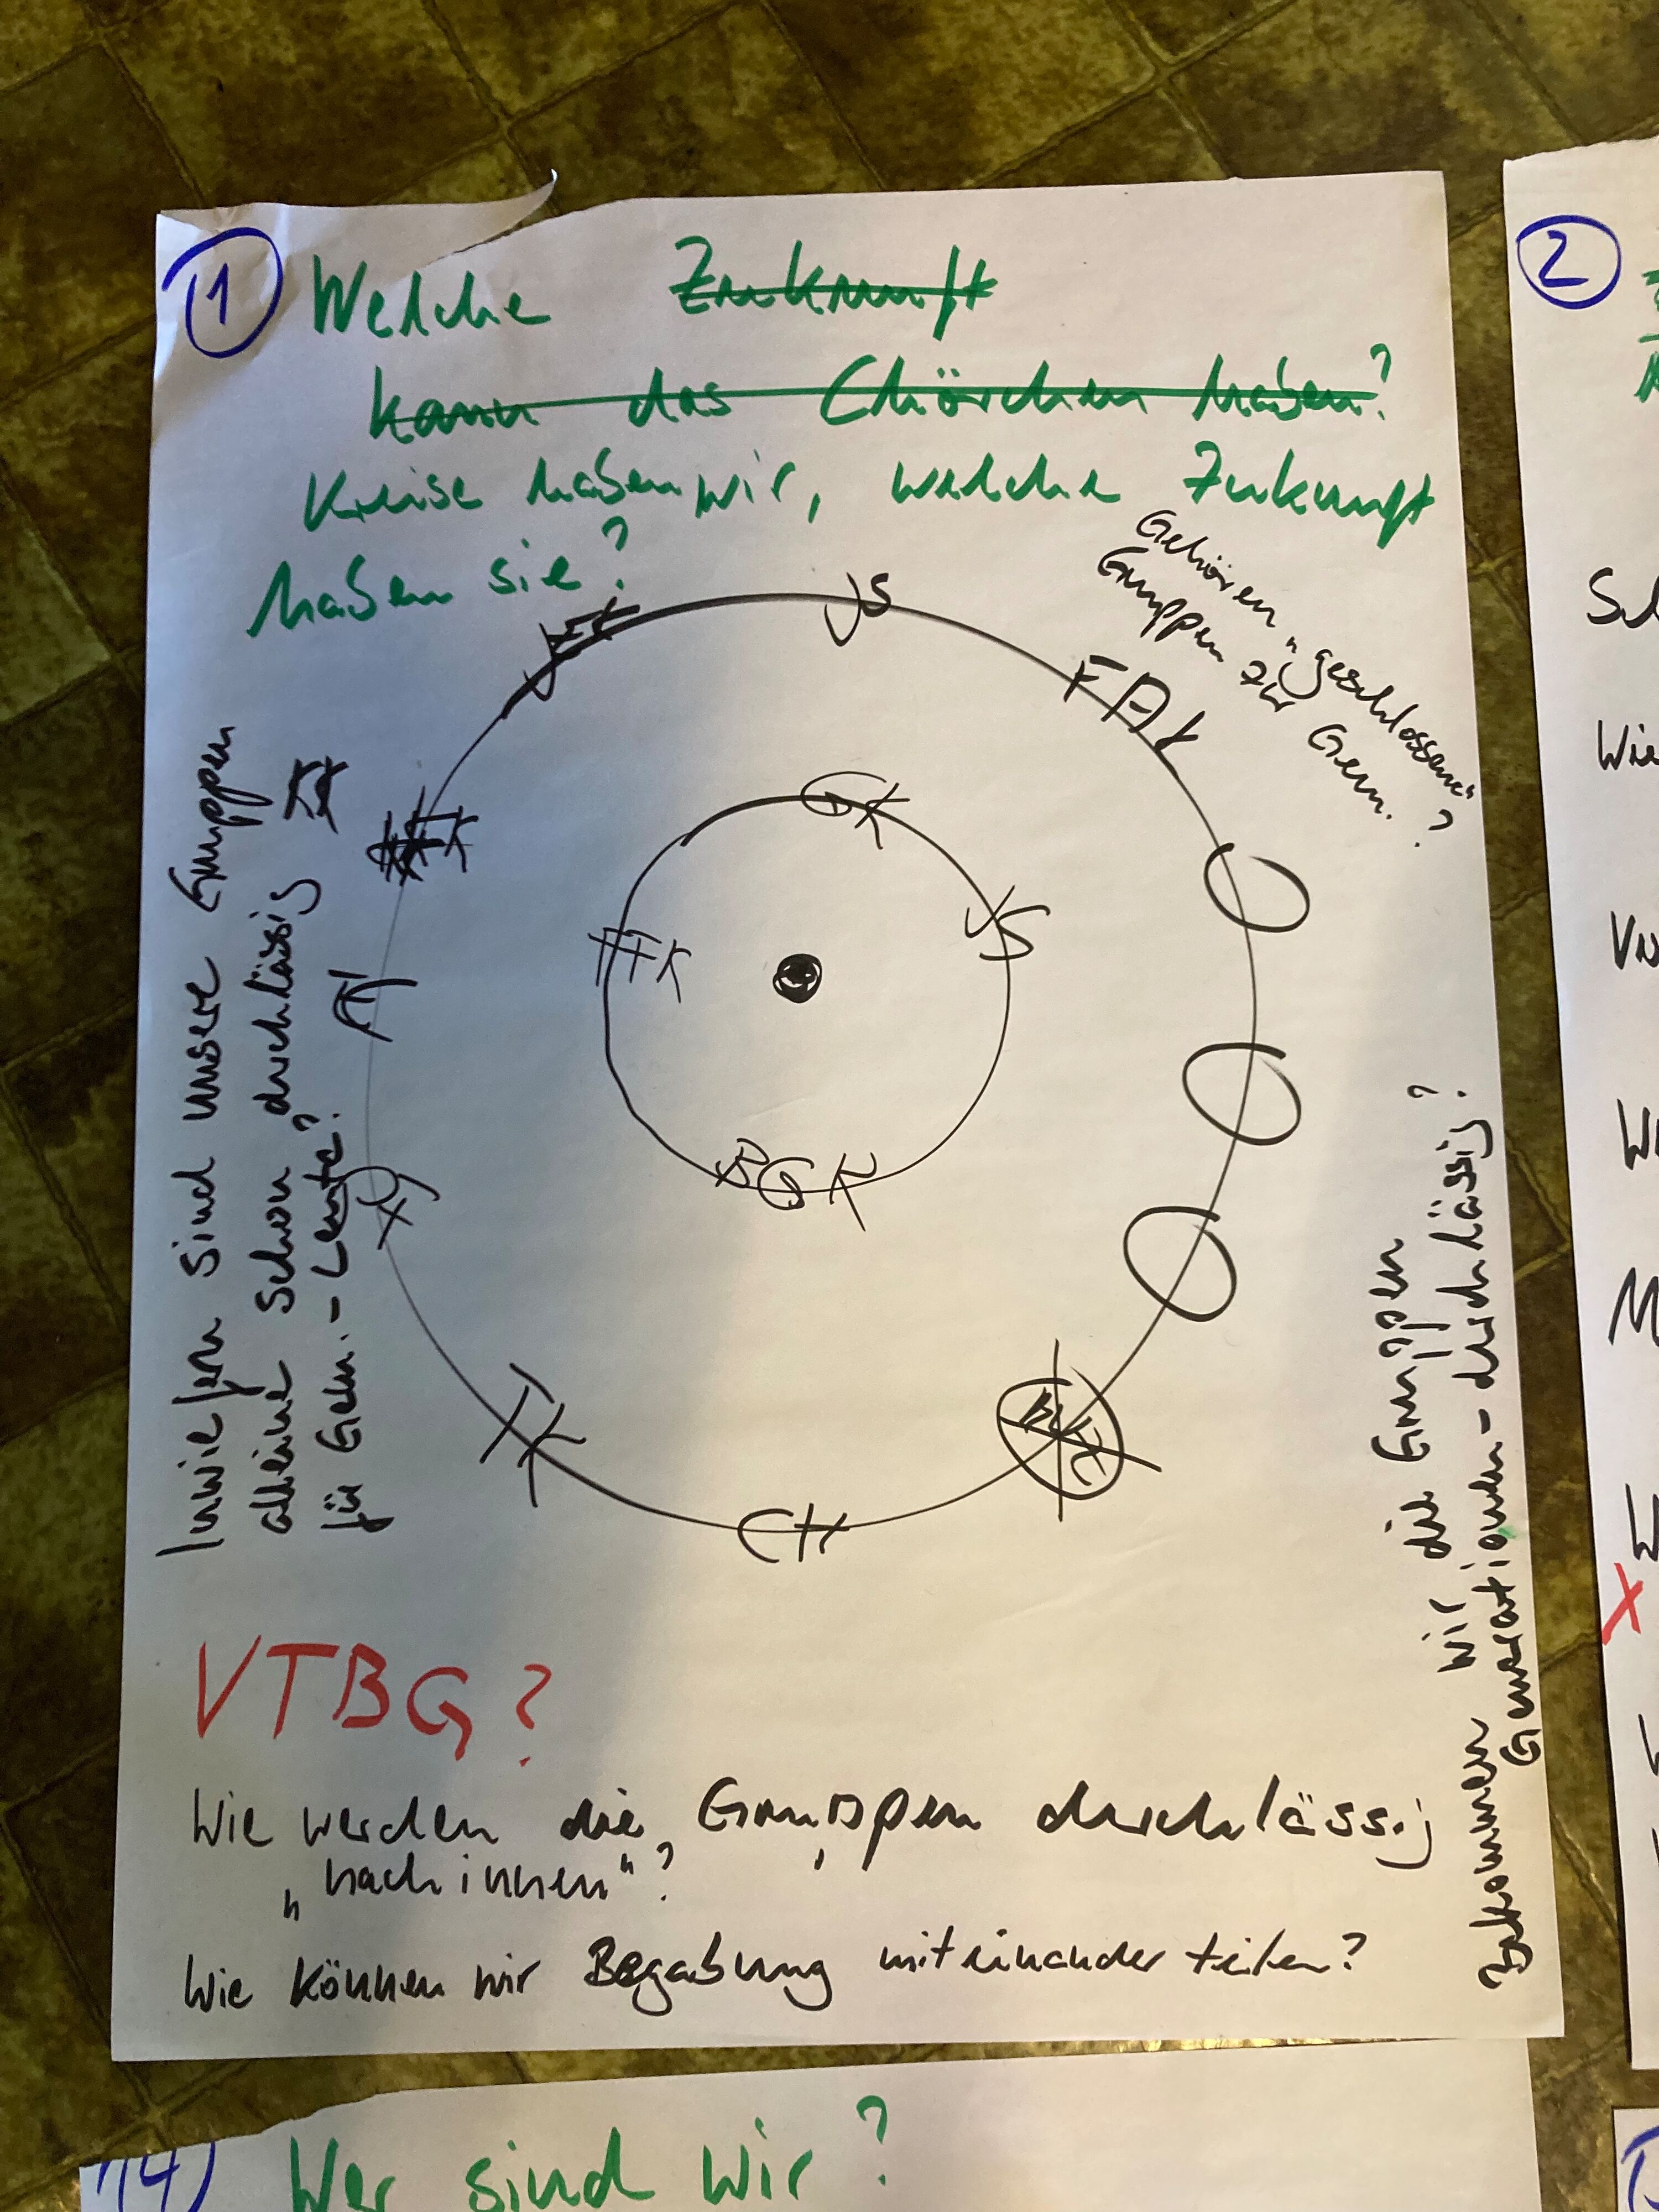 1 Welche Zukunft
kann das Chörchen haben?
Kreise haben wir, welche Zukunft
haben sie?
Gehören „geschlossene“
Gruppen zur Gem. ?
JS
FAK
GK
JS
FFK
BGK
TK
CH
Inwiefern sind unsere Gruppen
alleine schon durchlässig
für Gem.-Leute?
Bekommen wir die Gruppen
Generationen-durchlässig?
VTBG?
Wie werden die Gruppen durchlässig
„nach innen“?
Wie können wir Begabung miteinander teilen?
2
Wie
14) Wer sind wir?